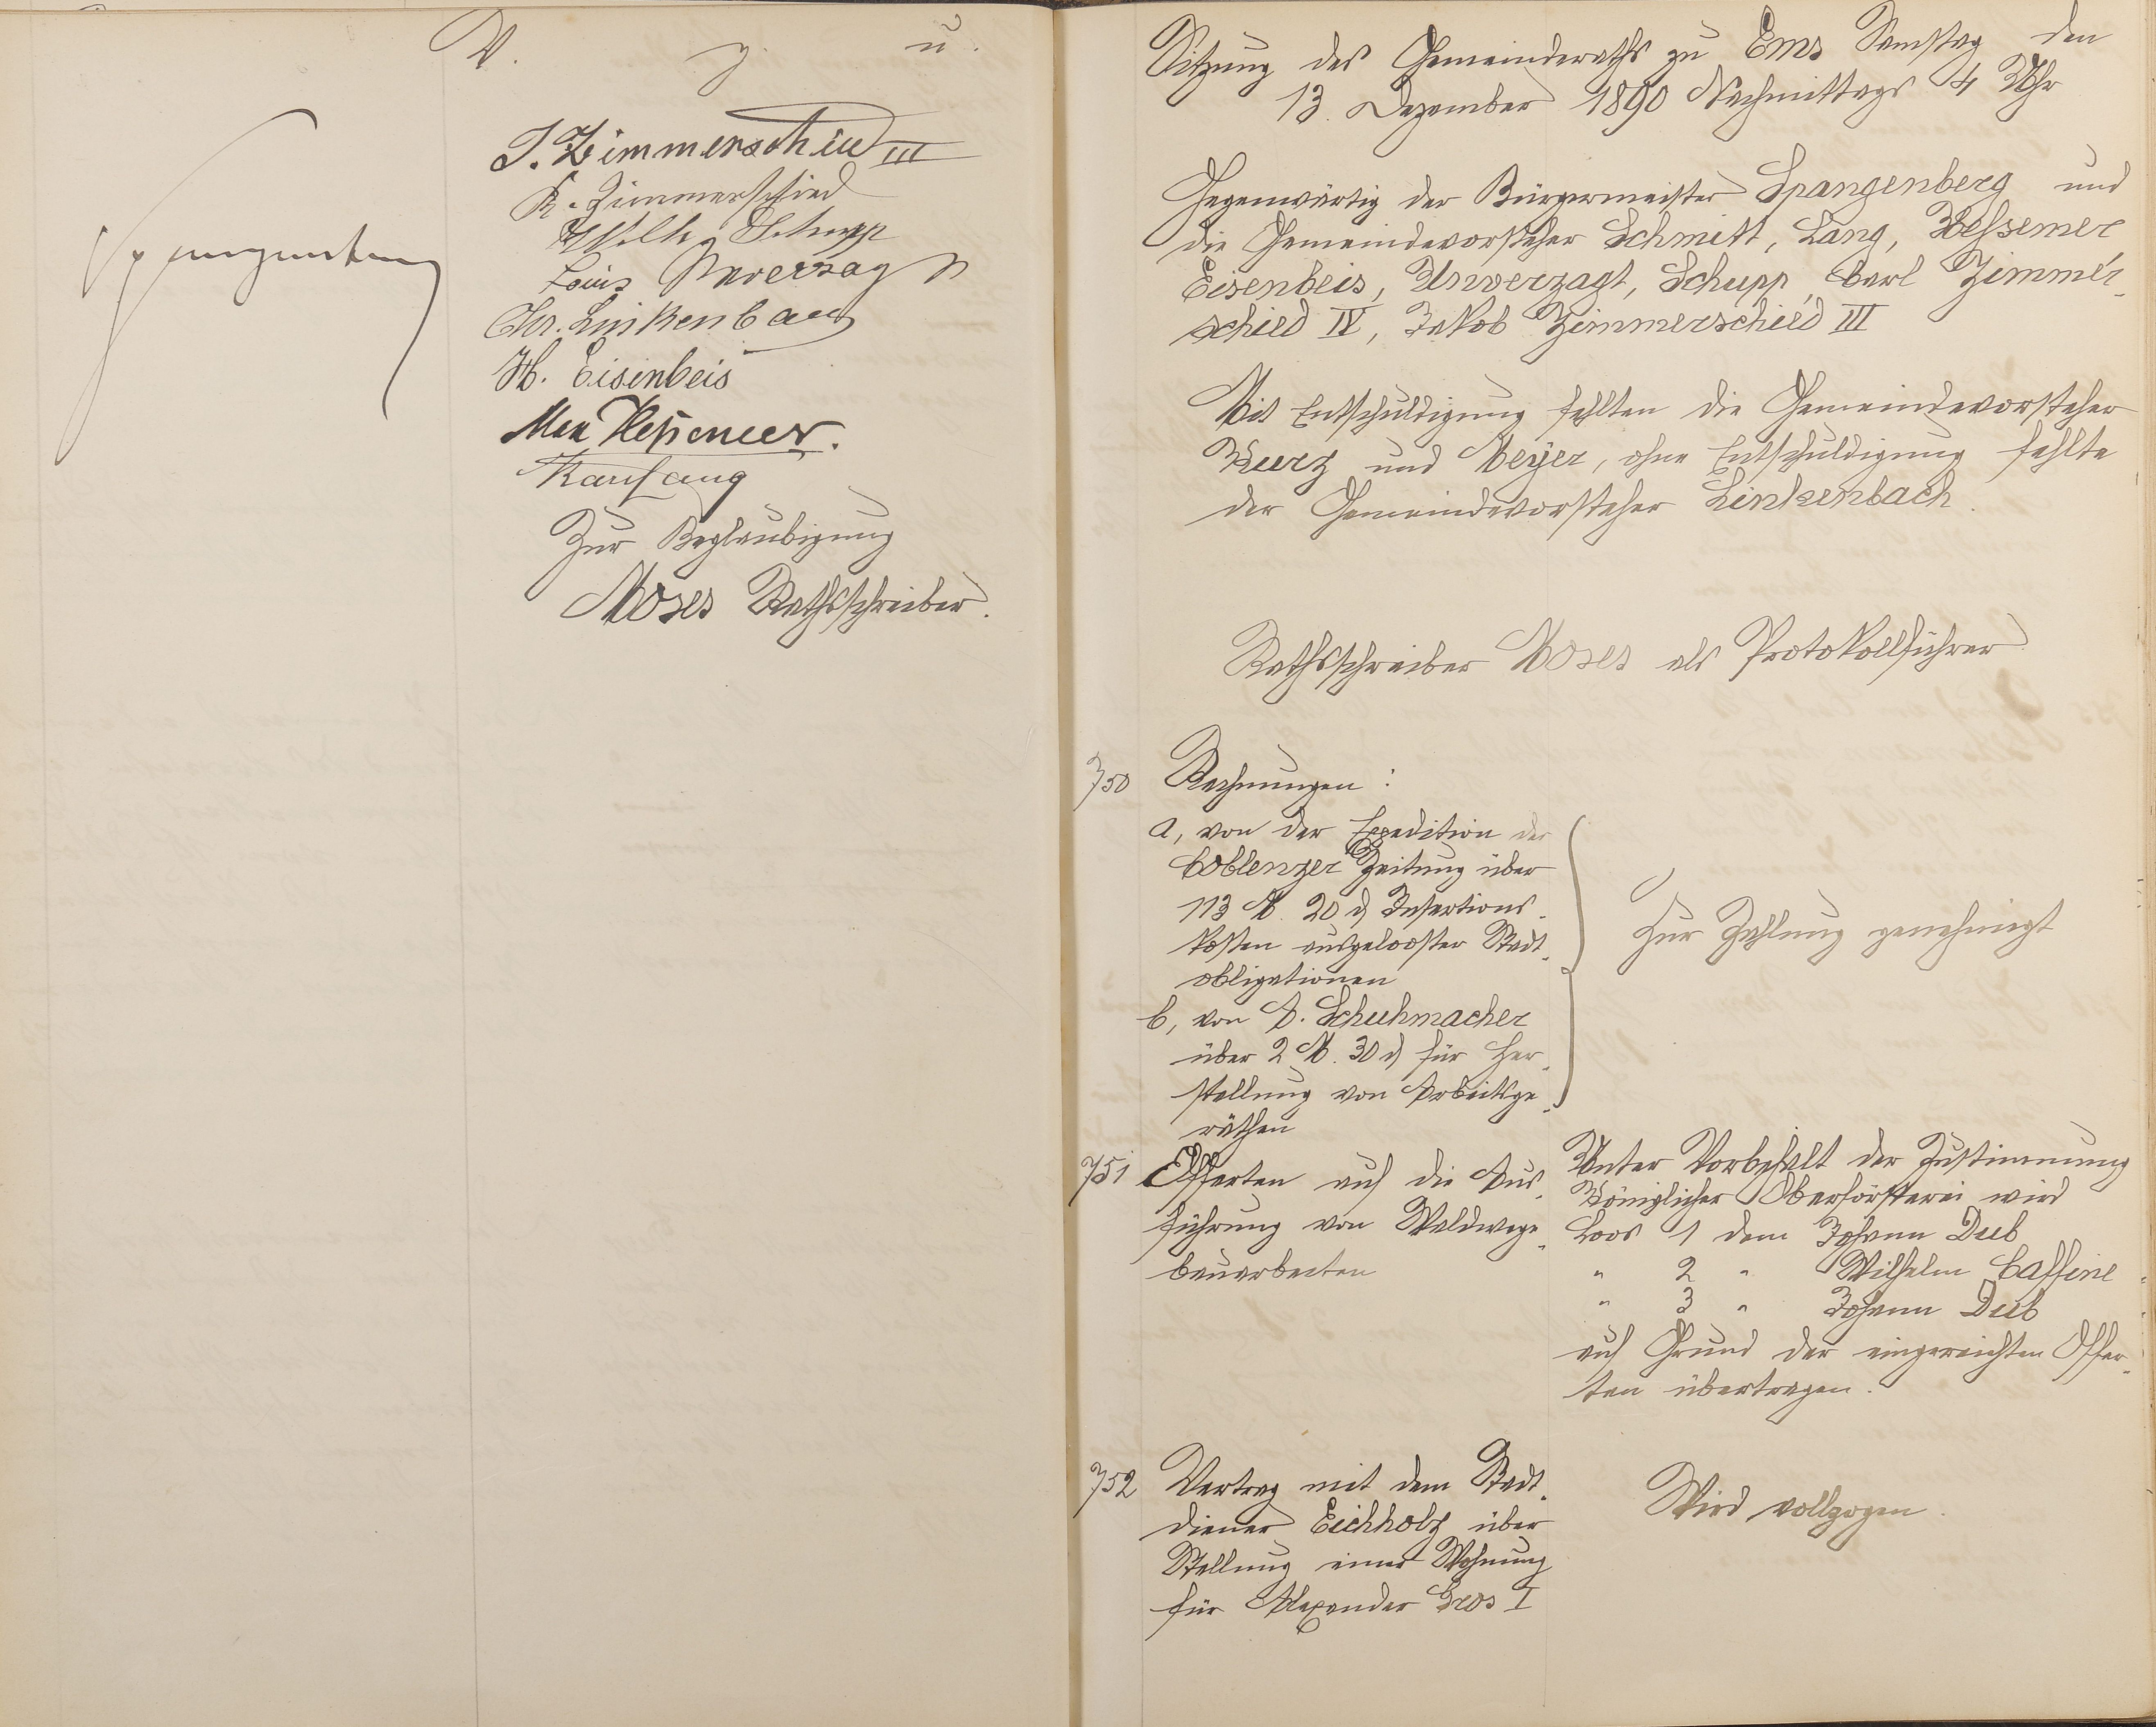 V. g. u.
Spangenberg
J. Zimmerschied III
K. Zimmerschied
Wilh. Schupp
Louis Unverzagt
Chr. Linkenbach
H. Eisenbeis
Max Heßemer.
Karl Lang
Zur Beglaubigung
Moses Rathsschreiber.
Sitzung des Gemeinderaths zu Ems Samstag den
13. Dezember 1890 Nachmittags 4 Uhr
Gegenwärtig der Bürgermeister Spangenberg und
die Gemeindevorsteher Schmitt, Lang, Hessemer
Eisenbeis, Unverzagt, Schupp, Carl Zimmer-
schied IV, Jakob Zimmerschied III
Mit Entschuldigung fehlten die Gemeindevorsteher
Kurz und Meyer, ohne Entschuldigung fehlte
der Gemeindevorsteher Linkenbach.
Rathsschreiber Moses als Protokollführer
750 Rechnungen:
a, von der Expedition der
Coblenzer Zeitung über
113 M. 20 d Insertions-
kosten ausgelooster Stadt-
obligationen
b, von A. Schuhmacher
über 2 M. 30 d für Her-
stellung von Arbeitsge-
räthen
Zur Zahlung genehmigt
751 Offerten auf die Aus-
führung von Waldwege-
bauarbeiten
Unter Vorbehalt der Zustimmung
Königlicher Oberförsterei wird
Loos 1 dem Johann Dub
" 2 " Wilhelm Caffine
" 3 " Johann Dub
auf Grund der eingereichten Offer-
ten übertragen.
752 Vertrag mit dem Stadt-
diener Eichholz über
Stellung einer Wohnung
für Alexander Gros I
Wird vollzogen.